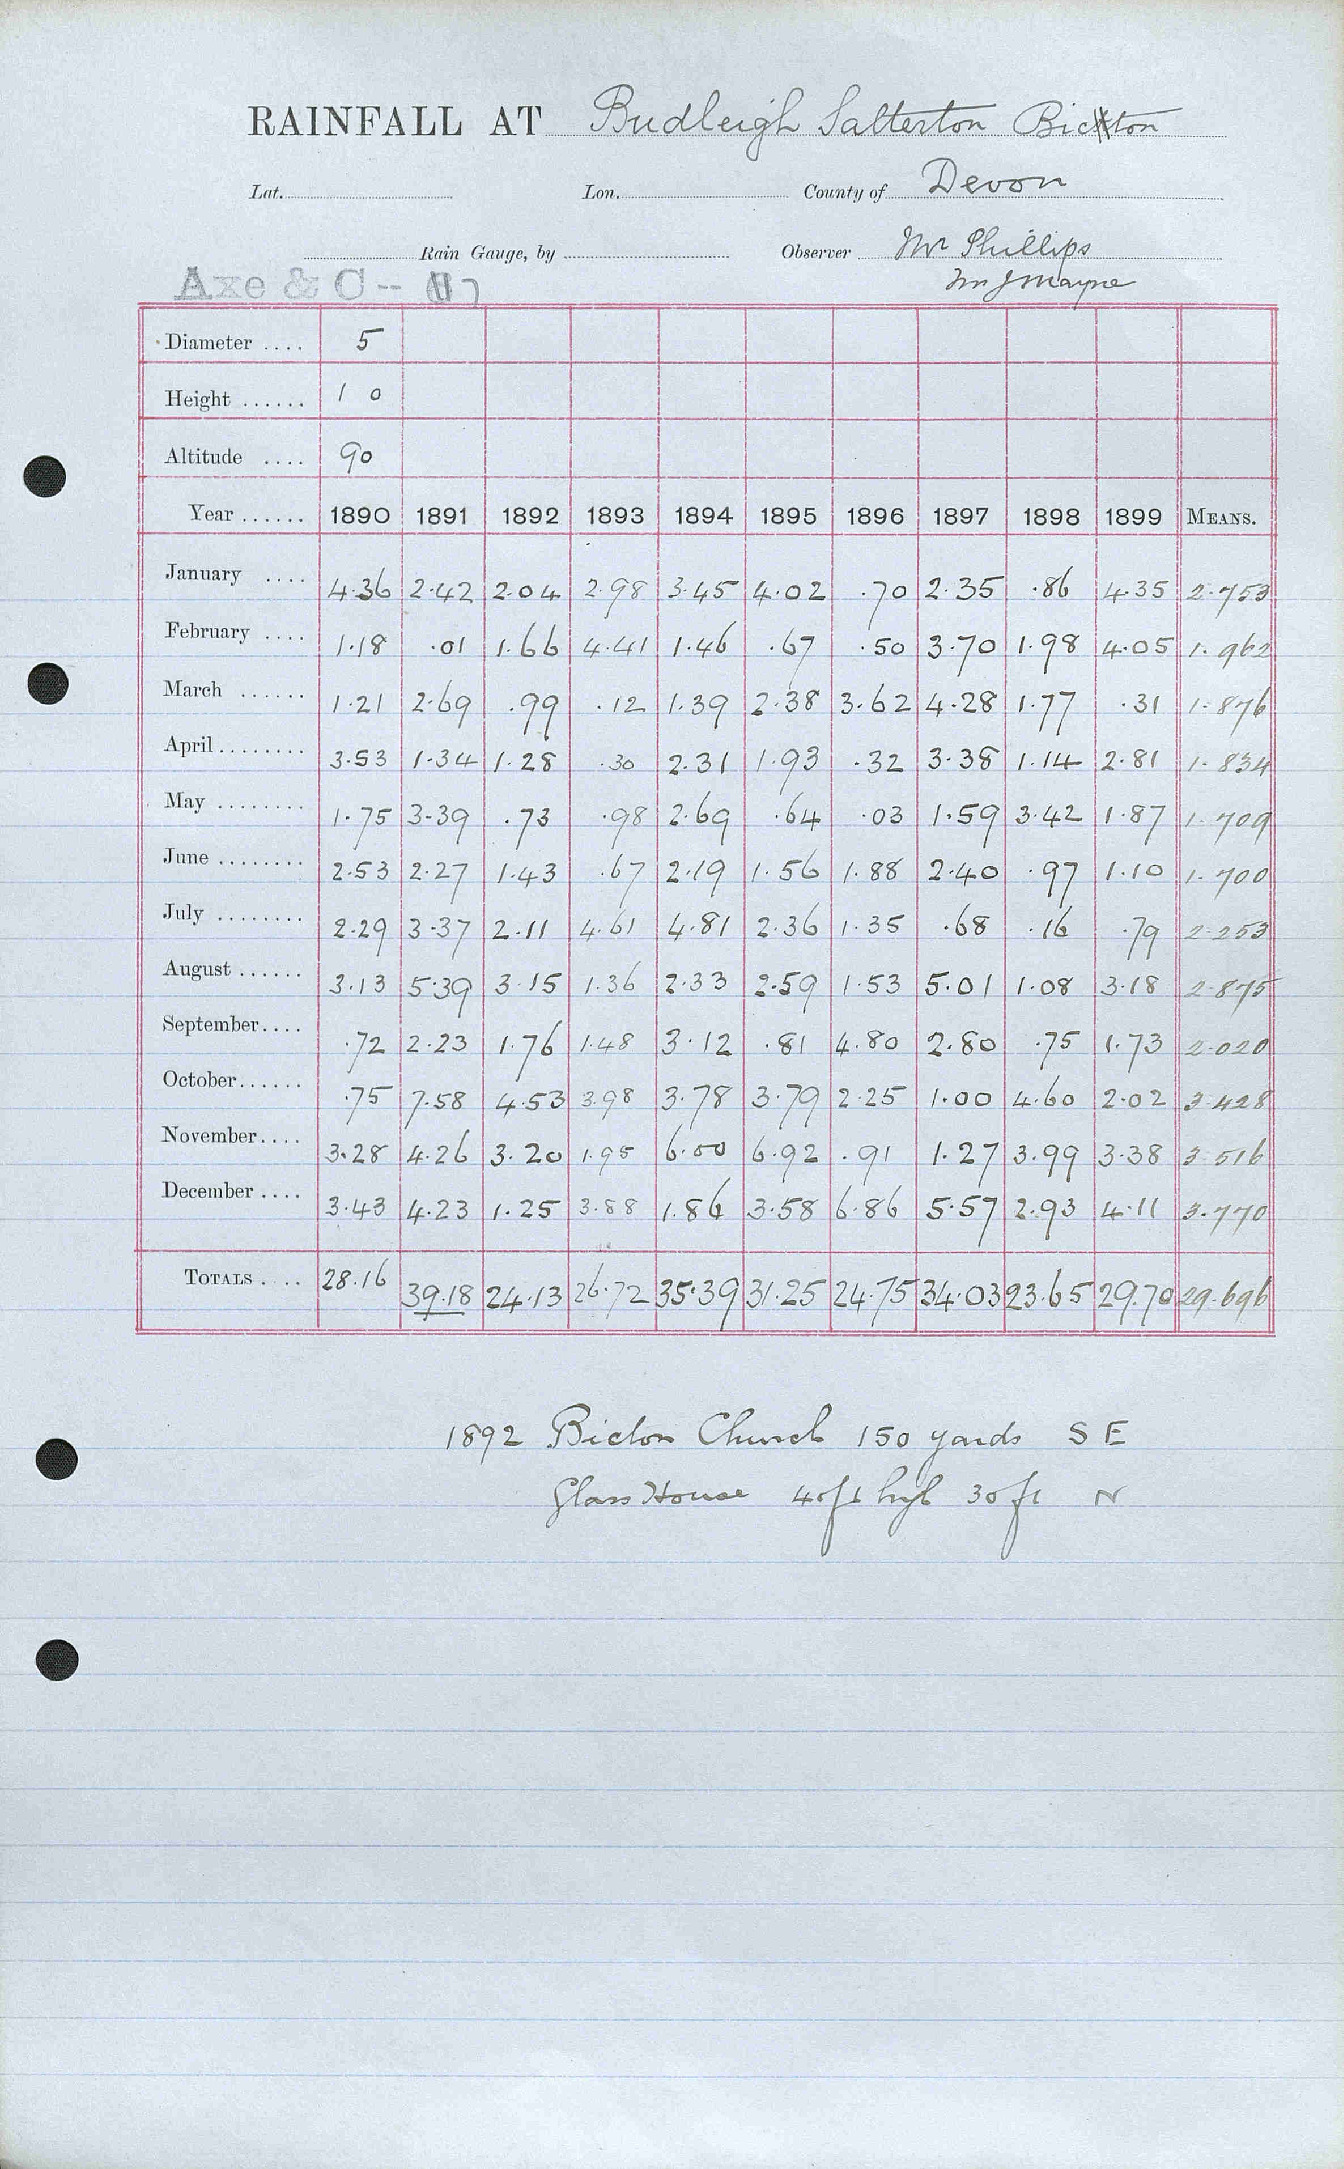 RAINFALL AT Budleigh Salterton Bicton
Lat. Lon. County of Devon
Rain Gauge, by Observer Mr Phillips
Axe & C - Mr J Mayne
Diameter .... 5
Height ...... 1 0
Altitude .... 90
Year ...... 1890 1891 1892 1893 1894 1895 1896 1897 1898 1899 MEANS.
January .... 4.36 2.42 2.04 2.98 3.45 4.02 .70 2.35 .86 4.35 2.753
February .... 1.18 .01 1.66 4.41 1.46 .67 .50 3.70 1.98 4.05 1.962
March ...... 1.21 2.69 .99 .12 1.39 2.38 3.62 4.28 1.77 .31 1.876
April ........ 3.53 1.34 1.28 .30 2.31 1.93 .32 3.38 1.14 2.81 1.834
May ........ 1.75 3.39 .73 .98 2.69 .64 .03 1.59 3.42 1.87 1.709
June ........ 2.53 2.27 1.43 .67 2.19 1.56 1.88 2.40 .97 1.10 1.700
July ........ 2.29 3.37 2.11 4.61 4.81 2.36 1.35 .68 .16 .79 2.253
August ...... 3.13 5.39 3.15 1.36 2.33 2.59 1.53 5.01 1.08 3.18 2.875
September.... .72 2.23 1.76 1.48 3.12 .81 4.80 2.80 .75 1.73 2.020
October...... .75 7.58 4.53 3.98 3.78 3.79 2.25 1.00 4.60 2.02 3.428
November.... 3.28 4.26 3.20 1.95 6.00 6.92 .91 1.27 3.99 3.38 3.516
December .... 3.43 4.23 1.25 3.88 1.86 3.58 6.86 5.57 2.93 4.11 3.770
TOTALS .... 28.16 39.18 24.13 26.72 35.39 31.25 24.75 34.03 23.65 29.70 29.696
1892 Bicton Church 150 yards S E
Glass House 40ft high 30 ft N